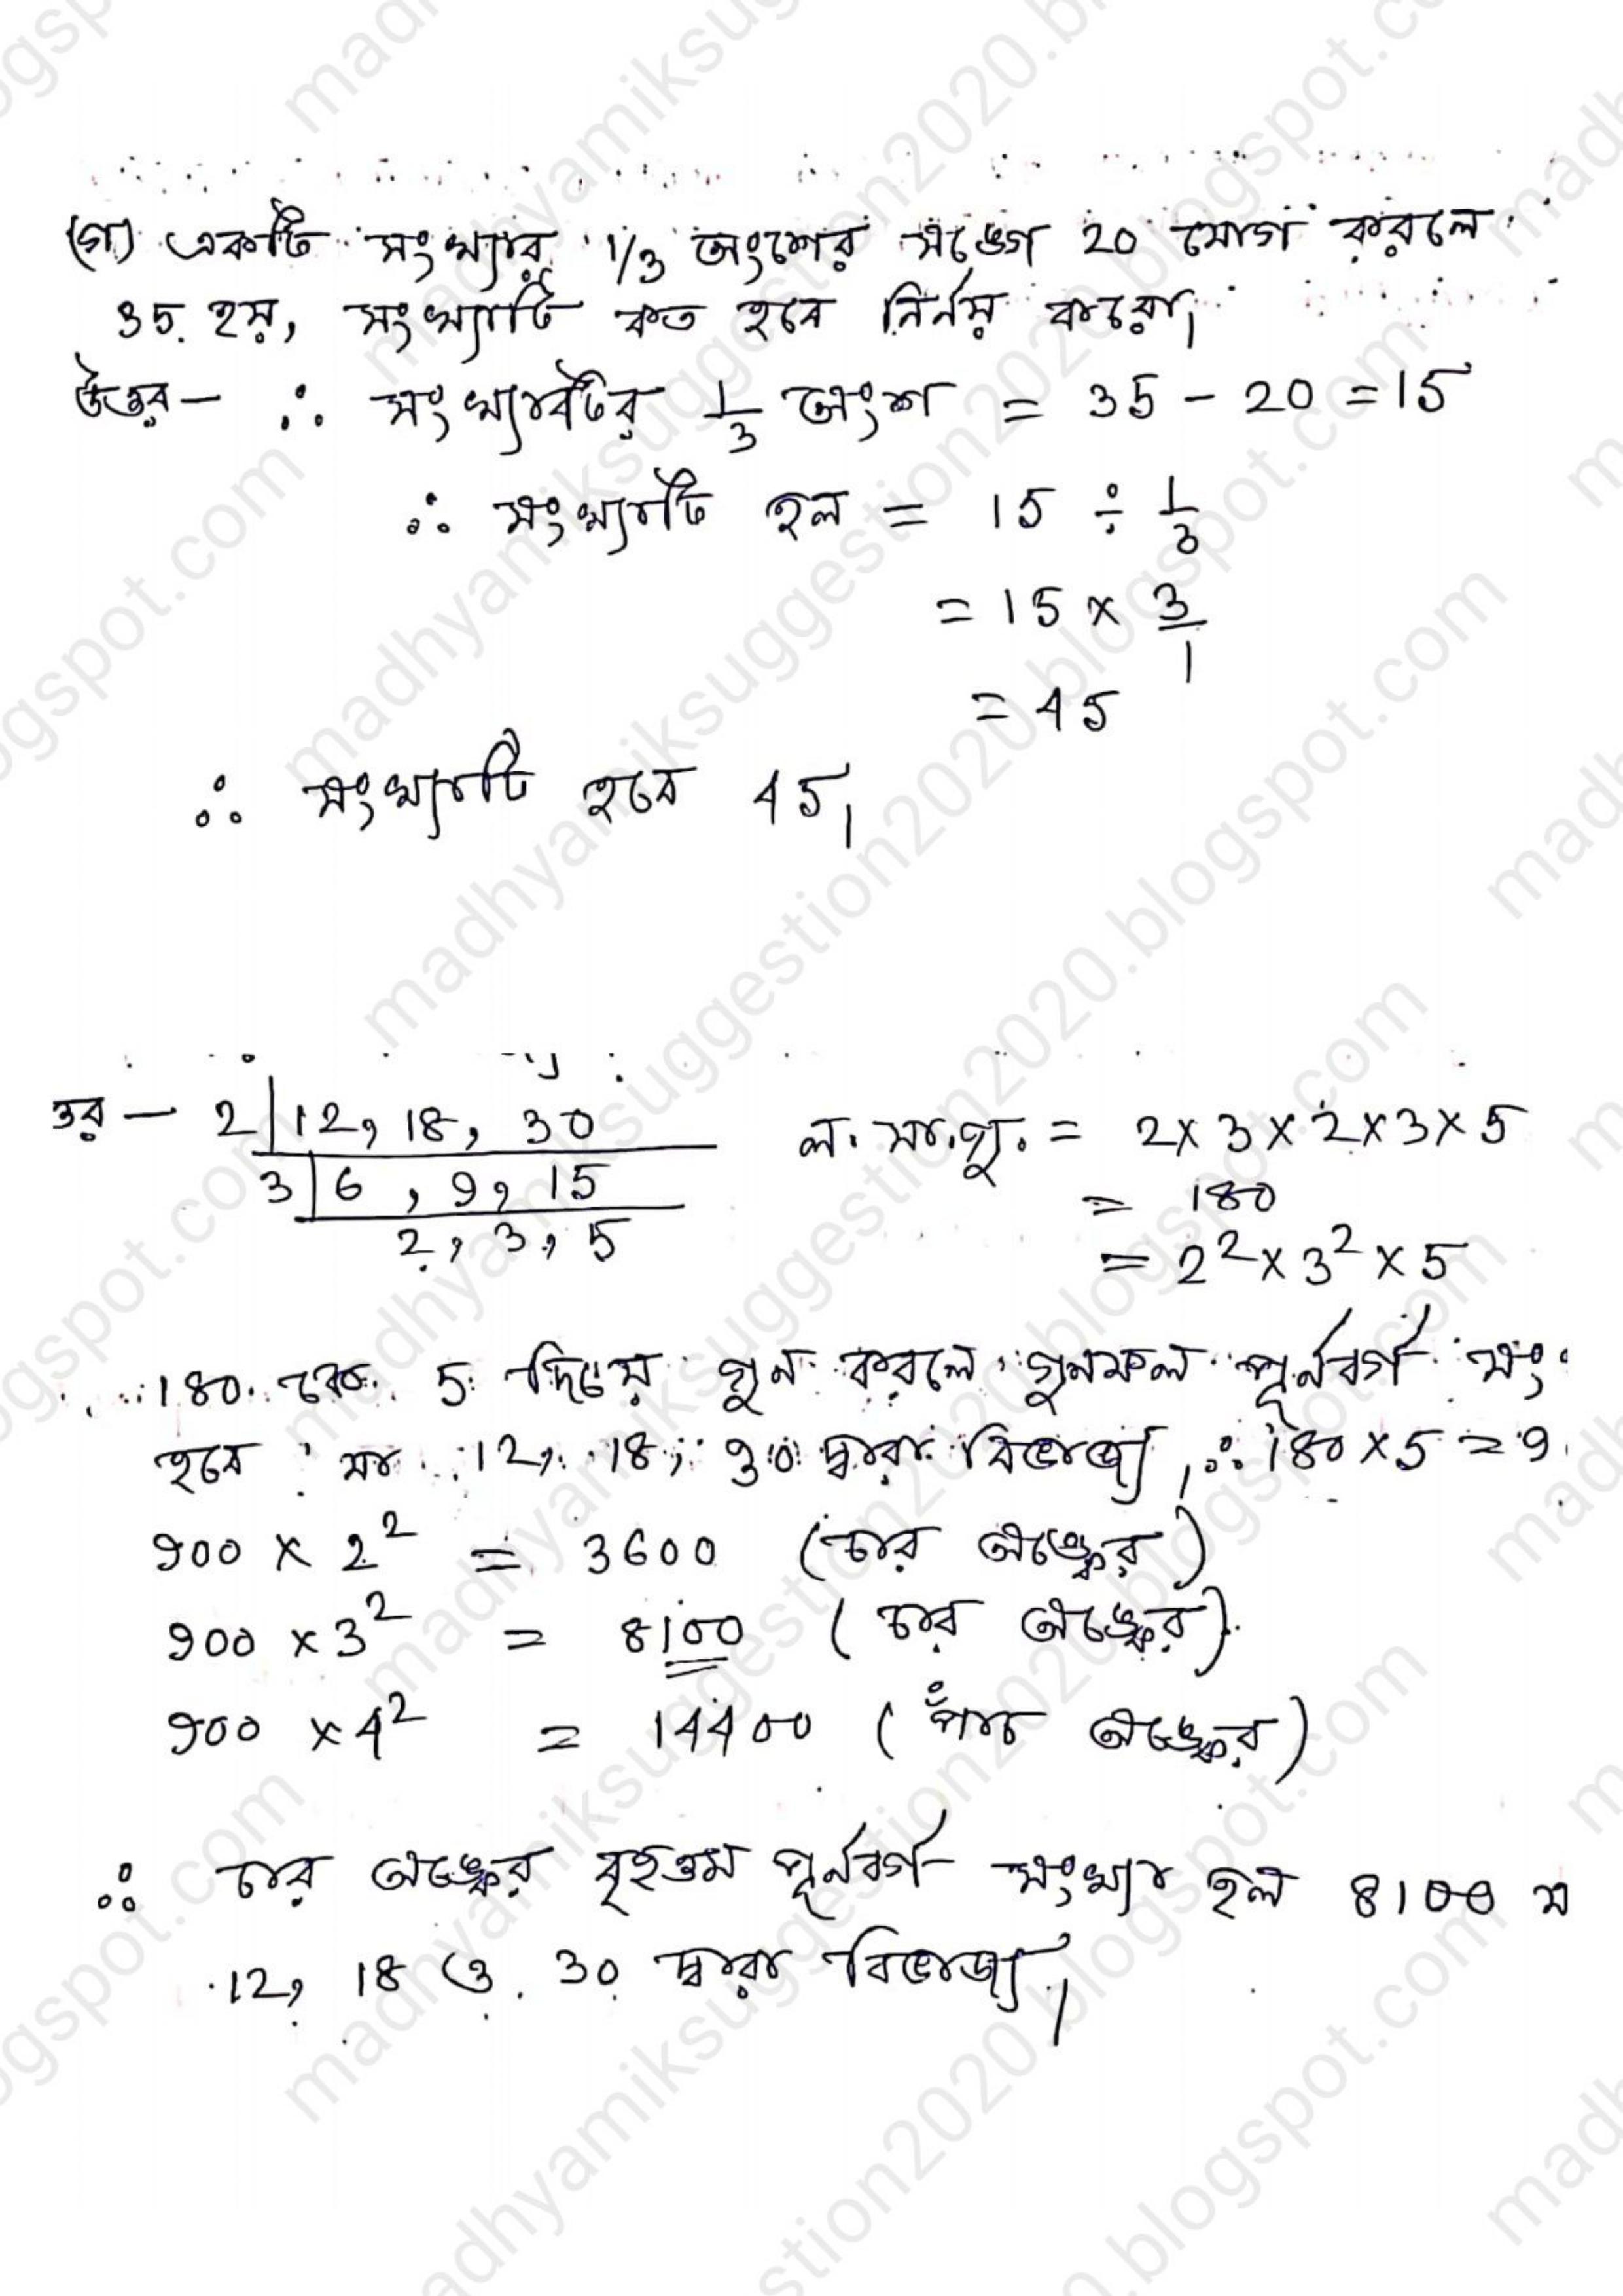 (গ) একটি সংখ্যার 1/3 অংশের সঙ্গে 20 যোগ করলে
35 হয়, সংখ্যাটি কত হবে নির্নয় করো।
উত্তর— ∴ সংখ্যাটির 1/3 অংশ = 35 - 20 = 15
∴ সংখ্যাটি হল = 15 ÷ 1/3
= 15 × 3/1
= 45
∴ সংখ্যাটি হবে 45।
ত্তর — 2 | 12, 18, 30 ল. সা.গু. = 2×3×2×3×5
3 | 6, 9, 15 = 180
2, 3, 5 = 2² × 3² × 5
180 কে 5 দিয়ে গুন করলে গুনফল পূর্নবর্গ সং
হবে যা 12, 18, 30 দ্বারা বিভাজ্য। ∴ 180 × 5 = 9
900 × 2² = 3600 (চার অঙ্কের)
900 × 3² = 8100 (চার অঙ্কের)
900 × 4² = 14400 (পাঁচ অঙ্কের)
∴ চার অঙ্কের বৃহত্তম পূর্নবর্গ সংখ্যা হল 8100 য
12, 18 ও 30 দ্বারা বিভাজ্য।
madhyamiksuggestion2020.blogspot.com